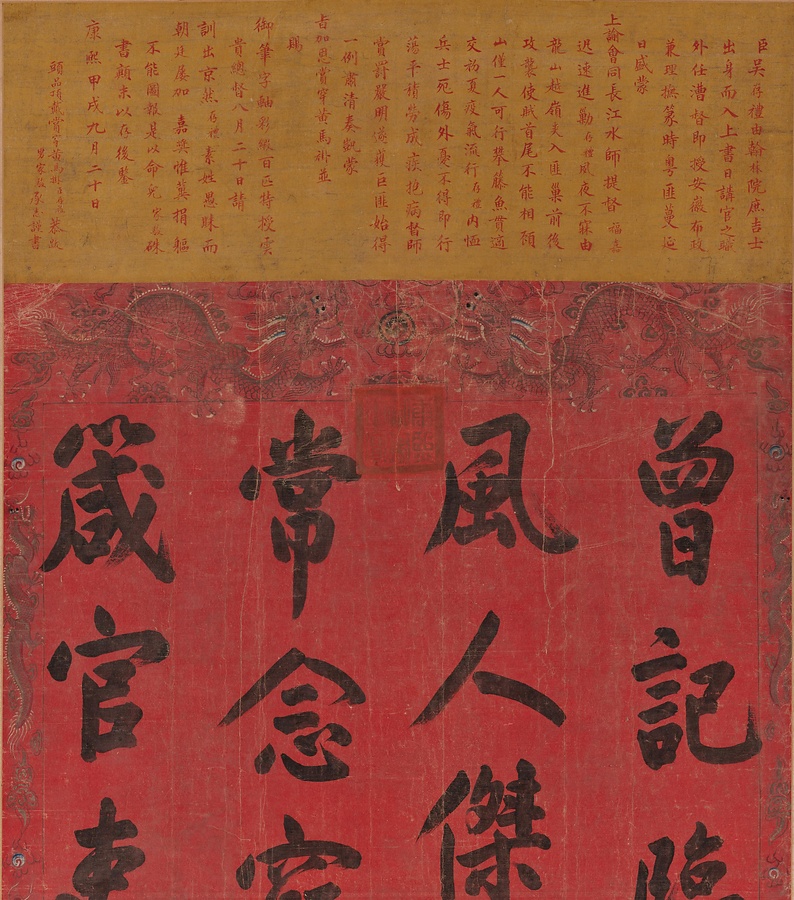 臣吳存禮由翰林院庶吉士
出身而入上書日講官之職
外任漕督即授安徽布政
兼理撫篆時粵匪蔓延
日感蒙
上諭會同長江水師提督
迅速進勦存禮夙夜不寐由
龍山越嶺突入匪巢前後
攻襲使賊首尾不能相顧
山僅一人可行攀藤魚貫適
交初夏疫氣流行存禮內恤
兵士死傷外憂不得即行
蕩平積勞成疾抱病督師
賞罰嚴明遂獲巨匪始得
一例肅清奏凱蒙
旨加恩賞穿黃馬褂並
賜
御筆字軸彩緞百匹特授雲
貴總督八月二十日請
訓出京然存禮素姓愚昧而
朝廷屢加嘉奬惟冀捐軀
不能圖報是以命兒硃
書顛末以存後鑒
康熙甲戌九月二十日
頭品頂戴賞穿黃馬褂
謹書
曾記臨
風人傑
常念容
箴官東